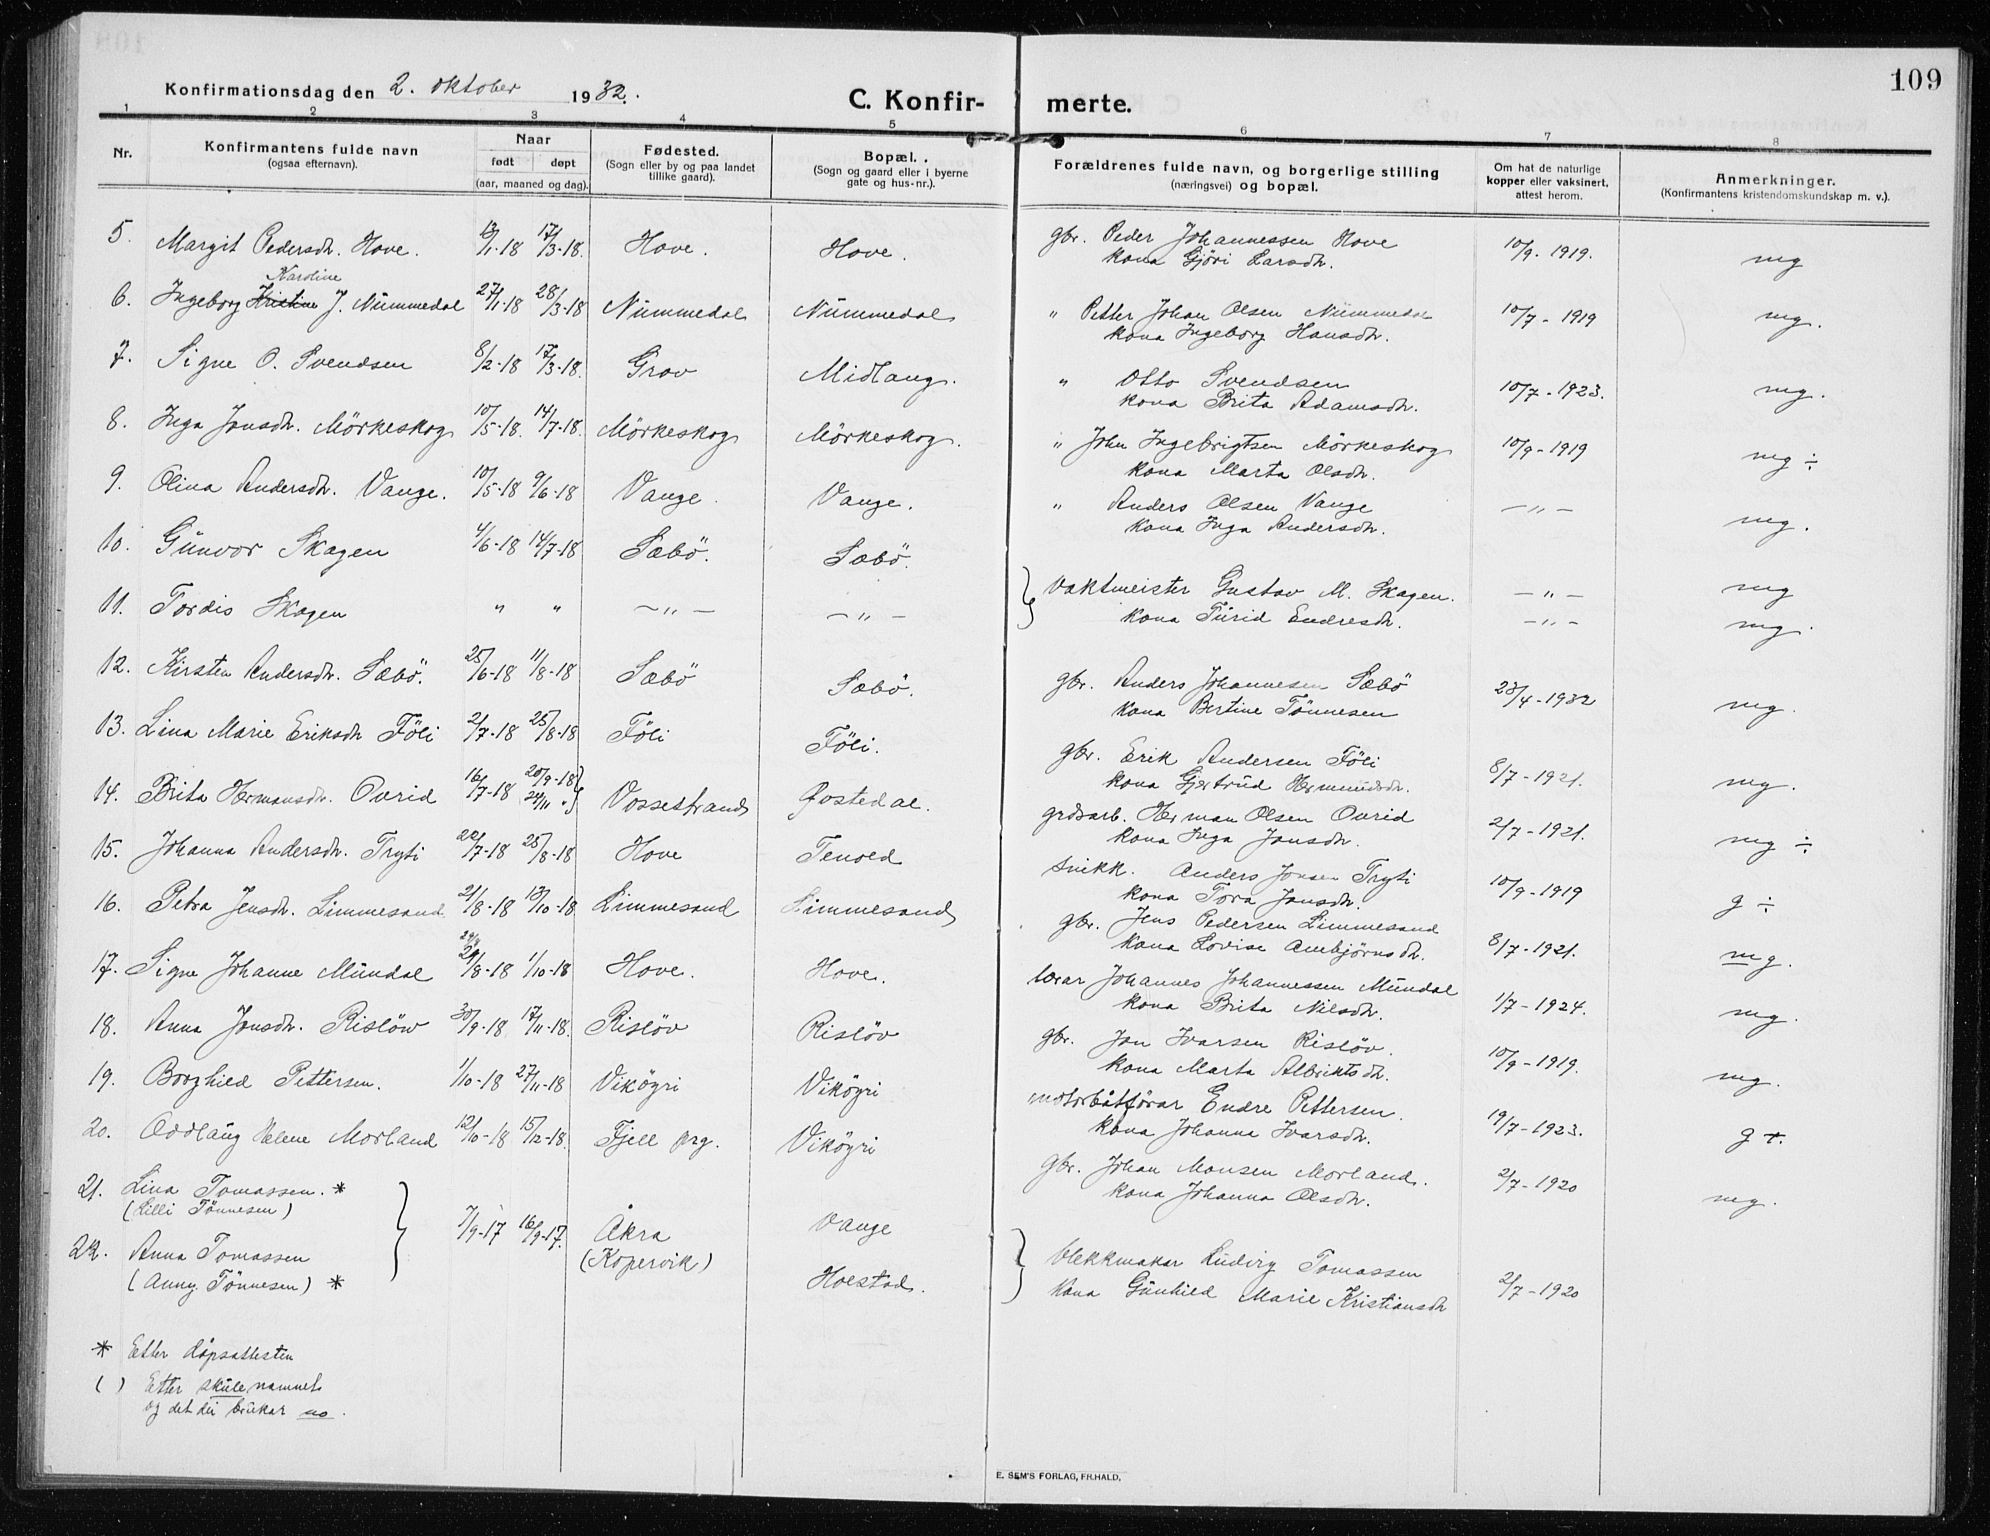 109
Konfirmationsdag den 2. oktober 1932.
C. Konfir- merte.
1 2 3 4 5 6 7 8
Nr. Konfirmantens fulde navn (ogsaa efternavn). Naar født døpt (aar, maaned og dag). Fødested. (Sogn eller by og paa landet tillike gaard). Bopæl. (Sogn og gaard eller i byerne gate og hus-nr.). Forældrenes fulde navn, og borgerlige stilling (næringsvei) og bopæl. Om hat de naturlige kopper eller vaksinert, attest herom. Anmerkninger. (Konfirmantens kristendomskundskap m. v.).
5. Margit Pedersdtr. Hove. 13/1-18 17/3-18. Hove. Hove. gbr. Peder Johannessen Hove 10/9-1919. mg
kona Gjöri Larsdtr.
Karoline
6. Ingeborg Kristine J. Nummedal 27/1-18 28/3-18 Nummedal Nummedal " Petter Johan Olsen Nummedal 10/7-1919 mg.
kona Ingeborg Hansdtr.
7. Signe O. Svendsen 8/2-18 17/3-18. Grov Midlang. " Otto Svendsen 10/7-1923. mg.
kona Brita Adamsdtr.
8. Inga Jonsdtr. Mörkeskog 10/5-18. 14/7-18. Mörkeskog Mörkeskog. " John Ingebrigtsen Mörkeskog 10/9-1919 mg ÷
kona Marta Olsdtr.
9. Olina Andersdtr. Vange. 10/5-18 9/6-18 Vange. Vange. " Anders Olsen Vange — " — mg.
kona Inga Andersdtr.
10. Gunvor Skagen 4/6-18 14/7-18 Sæbö. Sæbö. } Vaktmeister Gustav M. Skagen. — " — mg
11. Tordis Skagen " " — " — — " — kona Turid Endresdtr. — " — mg.
12. Kirsten Andersdtr. Sæbö. 25/6-18 11/8-18 Sæbö Sæbö. gbr. Anders Johannesen Sæbö 23/4-1932 mg.
kona Bertine Tönnesen
13. Lina Marie Eriksdtr Föli 2/7-18 25/8-18 Föli Föli. gbr. Erik Andersen Föli 8/7-1921. mg.
kona Gjertrud Hermundsdtr.
14. Brita Hermansdtr. Ovrid 16/7-18 20/9-18 (24/11 ") Vossestrand Jostedal. grdsarb. Herman Olsen Ovrid 2/7-1921. mg ÷
kona Inga Jonsdtr.
15. Johanna Andersdtr. Tryti 22/7-18 25/8-18 Hove Tenold snikk. Anders Jonsen Tryti 10/9-1919 g ÷
kona Tora Jonsdtr.
16. Petra Jensdtr. Limmesand 21/8-18 13/10-18 Limmesand Limmesand gbr. Jens Pedersen Limmesand 8/7-1921. mg.
kona Lovise Anbjørnsdtr.
17. Signe Johanne Mundal 29/8-18 1/10-18 Hove. Hove. lærar Johannes Johannessen Mundal 1/7-1924. mg.
kona Brita Nilsdtr.
18. Anna Jonsdtr. Rislöw 30/9-18 17/11-18. Rislöv Rislöv gbr. Jon Ivarsen Rislöv. 10/9-1919. mg.
kona Marta Albriktsdtr.
19. Borghild Pettersen. 1/10-18 27/11-18 Vikögri Vikögri motorbåtförar Endre Pettersen. 19/7-1923. g +.
kona Johanna Ivarsdtr.
20. Oddlaug Helene Morland 12/10-18 15/12-18. Fjell prg. Vikögri gbr. Johan Monsen Morland. 2/7-1920 mg.
kona Johanna Olsdtr.
21. Lina Tomassen. *
(Lilli Tönnesen) } 7/9-17 16/9-17. Åkra (Kopervik) Vange
22. Anna Tomassen
(Anny Tönnesen) * Holstad. } blekkmakar Ludvig Tomassen 2/7-1920
kona Gunhild Marie Kristiansdtr
* Etter dåpsattesten
( ) Etter skulenamnet
og det dei brukar no.
E. SEM'S FORLAG, FR.HALD.